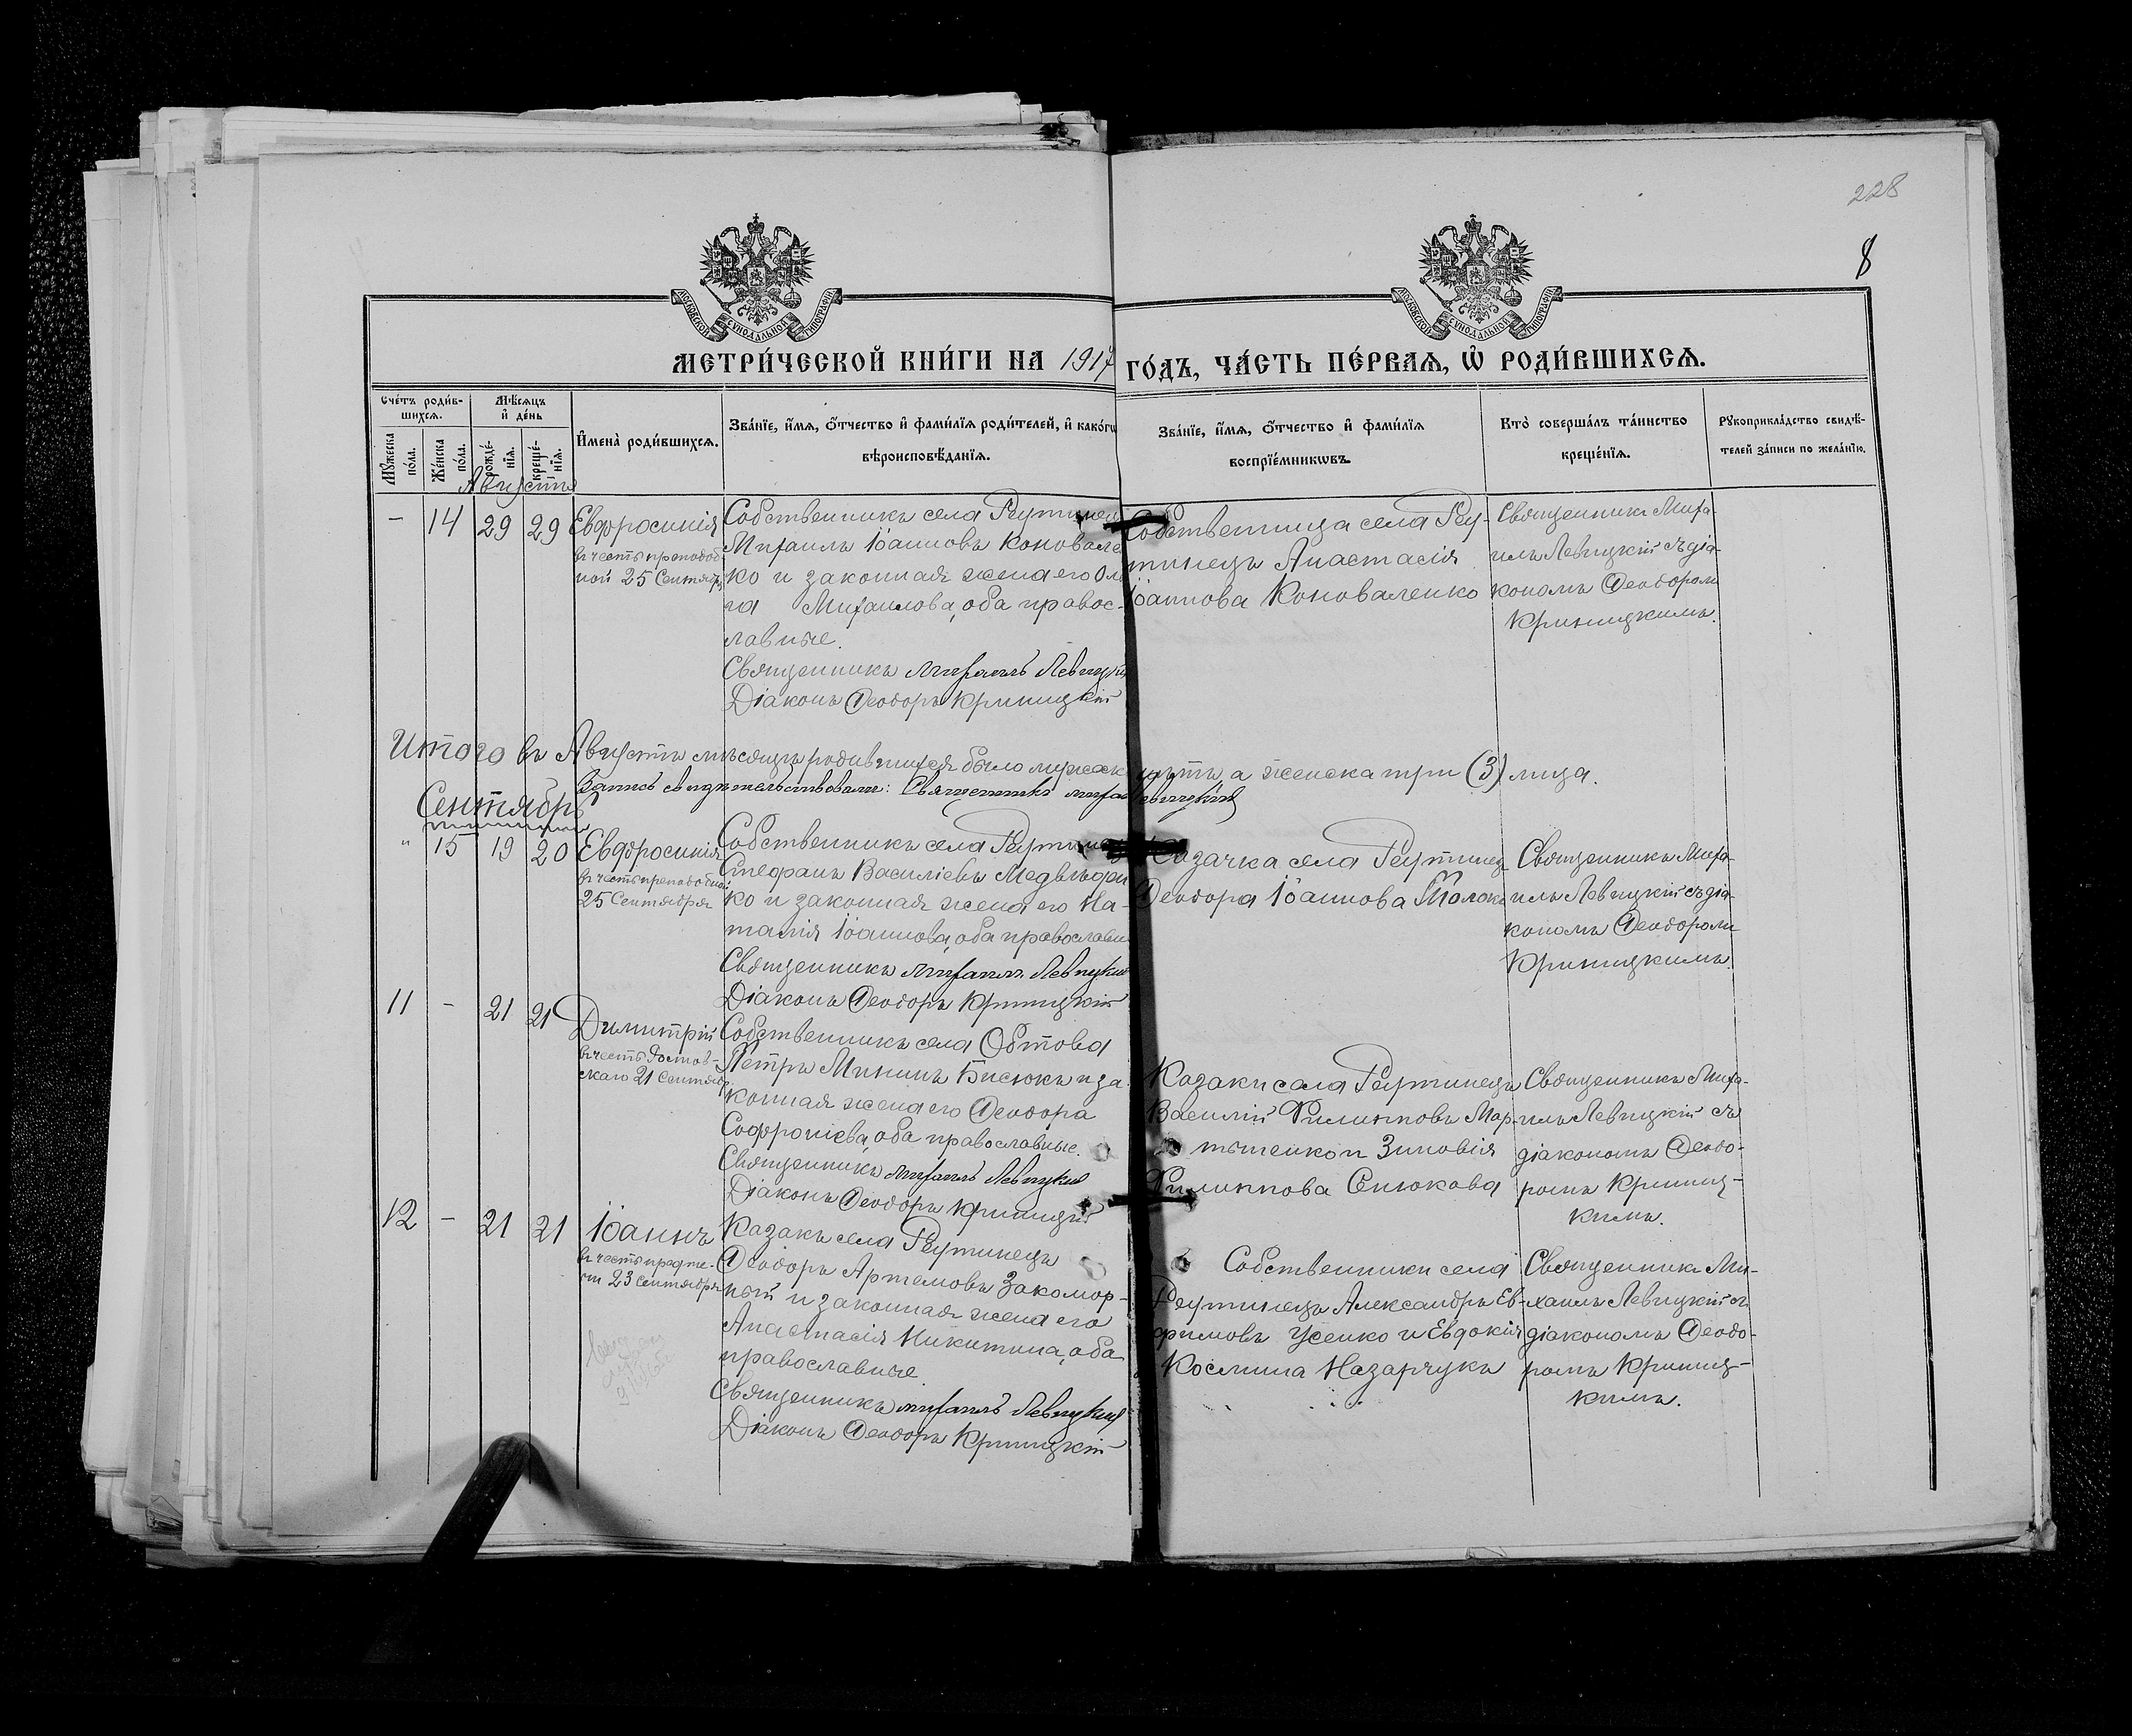 228
8
МОСКОВСКОЙ СУНОДАЛЬНОЙ ТИПОГРАФІИ
МОСКОВСКОЙ СУНОДАЛЬНОЙ ТИПОГРАФІИ
МЕТРИ́ЧЕСКОЙ КНИ́ГИ НА 1917 ГО́ДЪ, ЧА́СТЬ ПЕ́РВАЯ, Ѡ҆ РОДИ́ВШИХСЯ.
Сче́тъ роди́в-
шихся.
Мꙋ́жеска по́ла.
Же́нска по́ла.
Мѣ́сяцъ
и҆ де́нь
рожде́-
нїя.
креще́-
нїя.
И҆мена̀ роди́вшихся.
Зва́нїе, и҆́мя, ѻ҆́тчество и҆ фами́лїя роди́телей, и҆ како́гѡ
вѣроисповѣ́данїя.
Зва́нїе, и҆́мя, ѻ҆́тчество и҆ фами́лїя
воспрїе́мникѡвъ.
Кто̀ соверша́лъ та́инство
креще́нїя.
Рꙋкоприкла́дство свидѣ́-
телей за́писи по жела́нїю.
Августа
- 14 29 29
Евфросинія
въ честь преподоб
ной 25 Сентября
Собственникъ села Реутинец
Михаилъ Іоанновъ Коновале
ко и законная жена его Ол
га Михаилова, оба правос-
лавные.
Священникъ Михаилъ Левицкій
Діаконъ Ѳеодоръ Криницкій
Собственница села Реу-
тинецъ Анастасія
Іоаннова Коноваленко
Священникъ Миха
илъ Левицкій съ діа-
кономъ Ѳеодоромъ
Криницкимъ.
Итого въ Августѣ мѣсяцѣ родившихся было мужеск пять, а женска три (3) лица.
Запись свидѣтельствовали: Священникъ Миха Левицкій
Сентябрь
" 15 19 20
Евфросинія
въ честь преподобной
25 Сентября
Собственникъ села Реутинец
Стефанъ Василіевъ Медвѣдчи
ко и законная жена его На-
талія Іоаннова, оба православн
Священникъ Михаилъ Левицкій
Діаконъ Ѳеодоръ Криницкій
Козачка села Реутинец
Ѳеодора Іоаннова Толок
Священникъ Миха-
илъ Левицкій съ діа-
кономъ Ѳеодоромъ
Криницкимъ.
11 - 21 21
Димитрій
въ честь Ростов-
скаго 21 Сентябр.
Собственникъ села Обтова
Петръ Мининъ Бисюкъ и за
конная жена его Ѳеодора
Софроніева, оба православные.
Священникъ Михаилъ Левицкій
Діаконъ Ѳеодоръ Криницкій
Козаки села Реутинецъ
Василій Филипповъ Мар-
тыненко и Зиновія
Филиппова Сенюкова
Священникъ Миха-
илъ Левицкій съ
діакономъ Ѳеодо-
ромъ Криниц-
кимъ.
12 - 21 21
Іоаннъ
въ честь предте-
чи 23 Сентября
Казакъ села Реутинецъ
Ѳеодоръ Артемовъ Закомор-
ный и законная жена его
Анастасія Никитина, оба
православные.
Священникъ Михаилъ Левицкій
Діаконъ Ѳеодоръ Криницкій
Собственники села
Реутинецъ Александръ Ев-
фимовъ Усенко и Евдокія
Космина Назарчукъ
Священникъ Ми-
хаилъ Левицкій съ
діакономъ Ѳеодо-
ромъ Криниц-
кимъ.